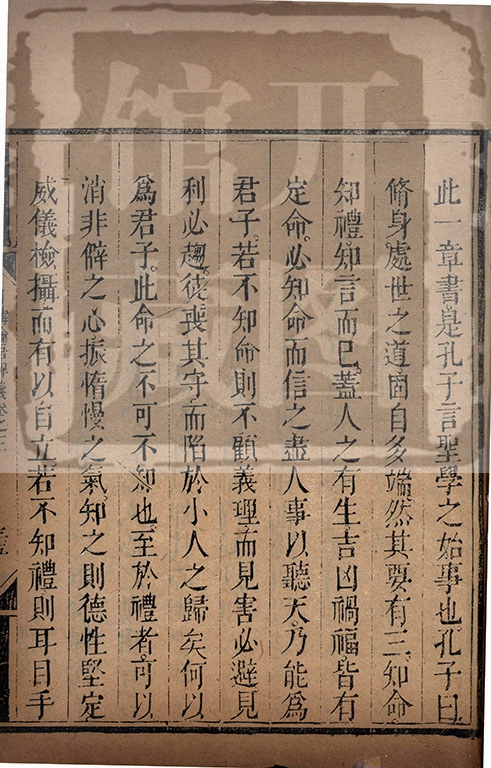 此一章書是孔子言聖學之始事也孔子曰
脩身處世之道固自多端然其要有三知命
知禮知言而已蓋人之有生吉凶禍福皆有
定命必知命而信之盡人事以聽天乃能為
君子若不知命則不顧義理而見害必避見
利必趨徒喪其守而陷於小人之歸矣何以
為君子此命之不可不知也至於禮者可以
消非僻之心振惰慢之氣知之則德性堅定
威儀檢攝而有以自立若不知禮則耳目手